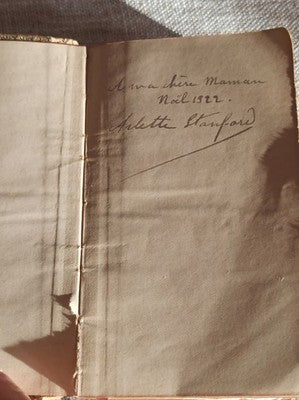 A ma chère Maman
Noël 1922.
Arlette Stanford